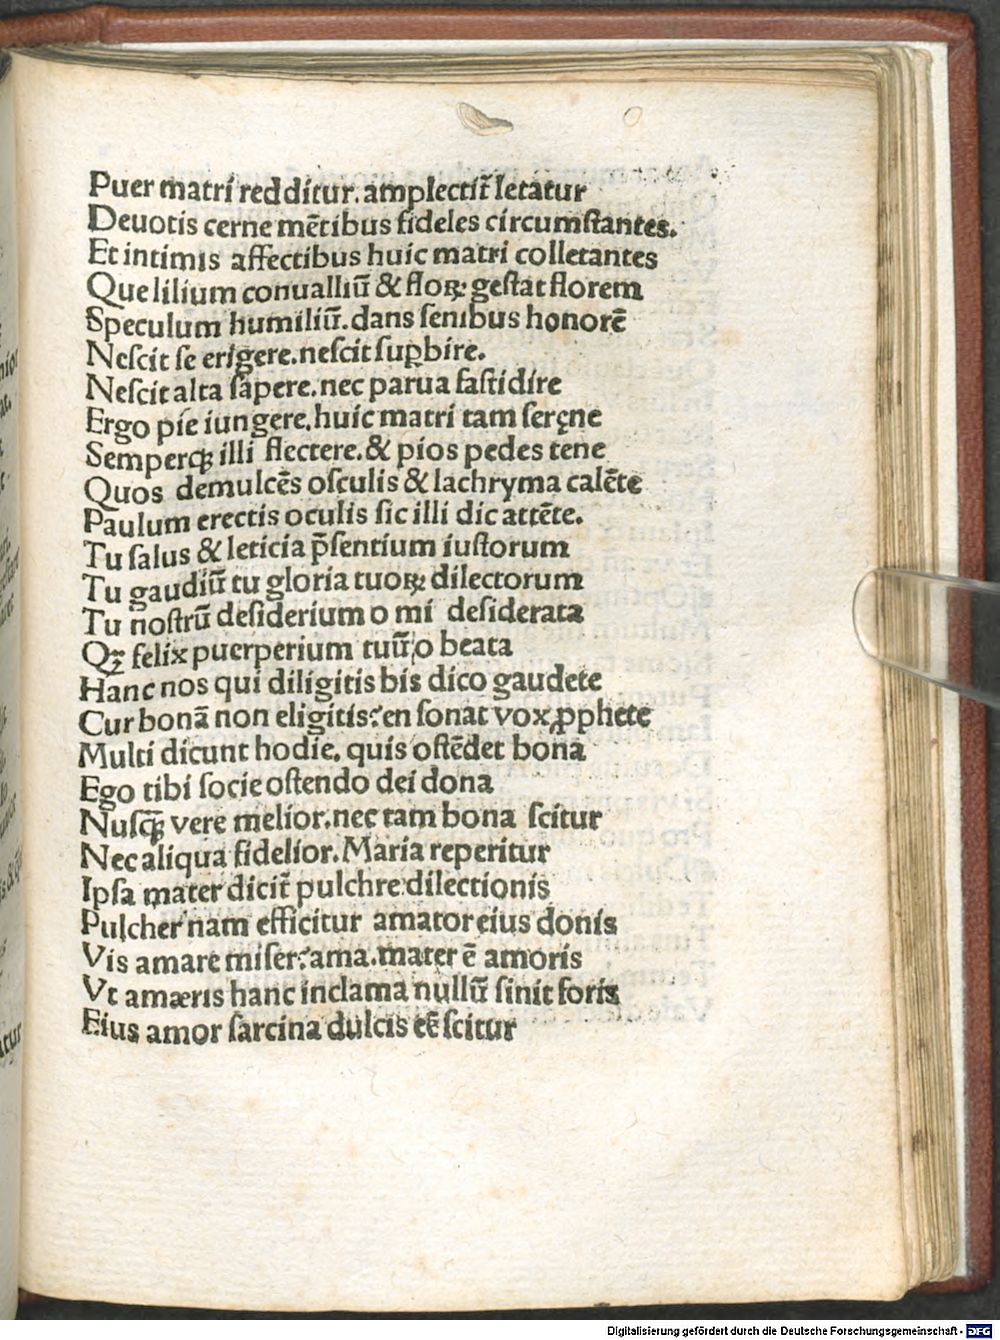 Puer matri redditur. amplectit̃ letatur
Deuotis cerne mẽtibus fideles circumſtantes.
Et intimis affectibus huic matri colletantes
Que lilium conualliũ & floꝝ geſtat florem
Speculum humiliũ. dans ſenibus honorẽ
Neſcit ſe erigere. neſcit ſuꝑbire.
Neſcit alta ſapere. nec parua faſtidire
Ergo pie iungere. huic matri tam ſeręne
Semperqꝫ illi flectere. & pios pedes tene
Quos demulcẽs oſculis & lachryma calẽte
Paulum erectis oculis ſic illi dic attẽte.
Tu ſalus & leticia p̃ſentium iuſtorum
Tu gaudiũ tu gloria tuoꝝ dilectorum
Tu noſtrũ deſiderium o mi deſiderata
Qꝫ̃ felix puerperium tuũ o beata
Hanc nos qui diligitis bis dico gaudete
Cur bonã non eligitis: en ſonat vox ꝓphete
Multi dicunt hodie. quis oſtẽdet bona
Ego tibi ſocie oſtendo dei dona
Nuſqꝫ̃ vere melior. nec tam bona ſcitur
Nec aliqua fidelior. Maria reperitur
Ipſa mater dicit̃ pulchre dilectionis
Pulcher nam efficitur amator eius donis
Vis amare miſer: ama. mater ẽ amoris
Vt amæris hanc inclama nullũ ſinit foris
Eius amor ſarcina dulcis eẽ ſcitur
Digitalisierung gefördert durch die Deutsche Forschungsgemeinschaft - DFG